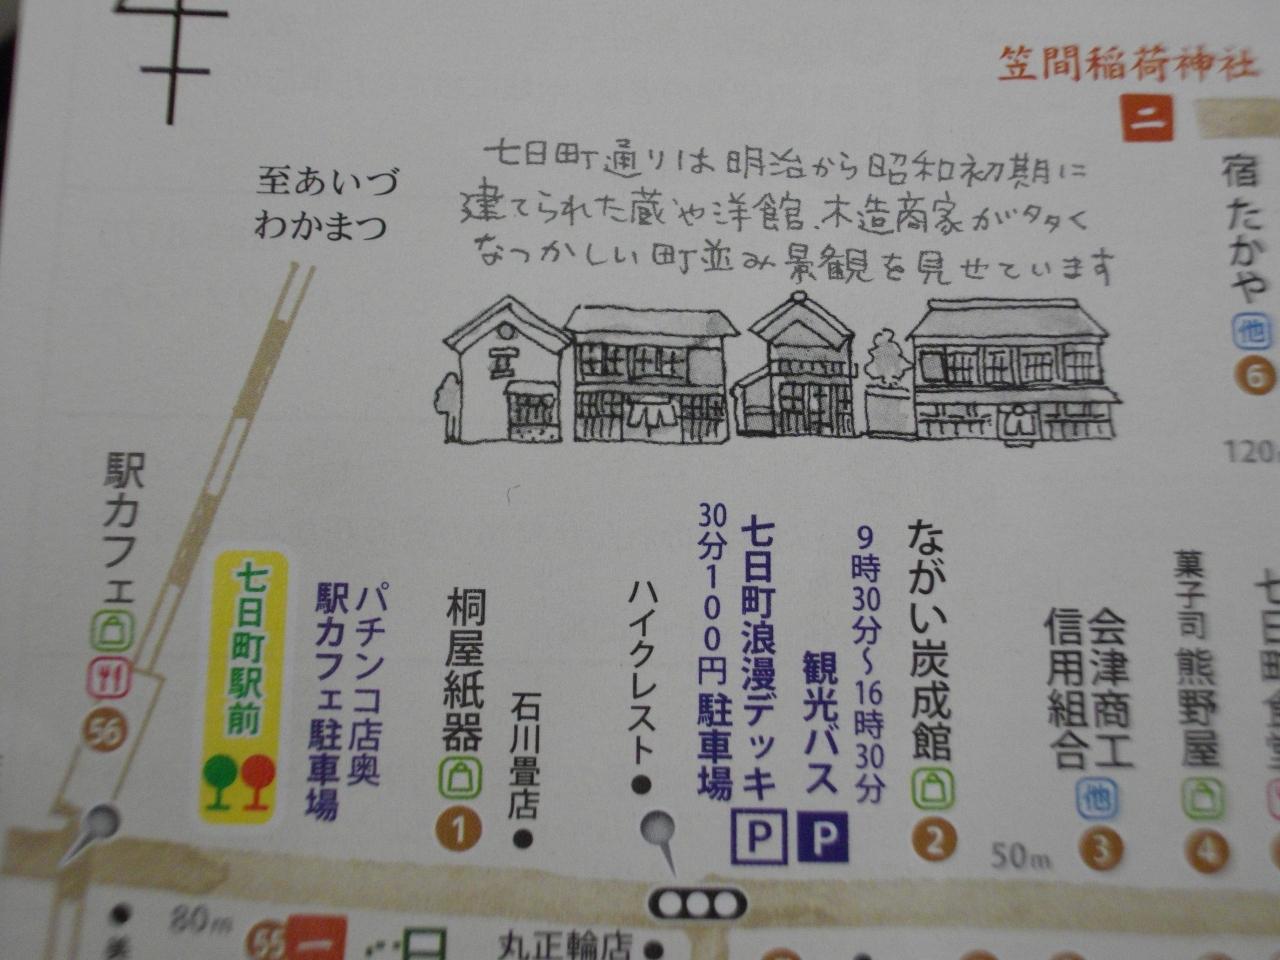 笠間稲荷神社
二
至あいづ
わかまつ
七日町通りは明治から昭和初期に
建てられた蔵や洋館、木造商家が多く
なつかしい町並み景観を見せています
宿たかや
他
6
駅カフェ
56
七日町駅前
パチンコ店奥
駅カフェ駐車場
桐屋紙器
1
石川畳店
ハイクレスト
七日町浪漫デッキ
30分100円 駐車場
P
9時30分~16時30分
観光バス
P
ながい炭成館
2
50m
会津商工
信用組合
他
3
菓子司 熊野屋
4
80m
55
一
丸正輪店